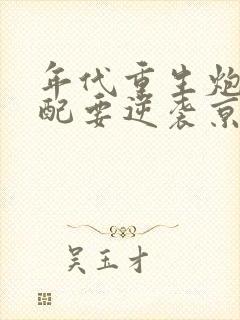 年代重生炮
配要逆袭京
吴玉才